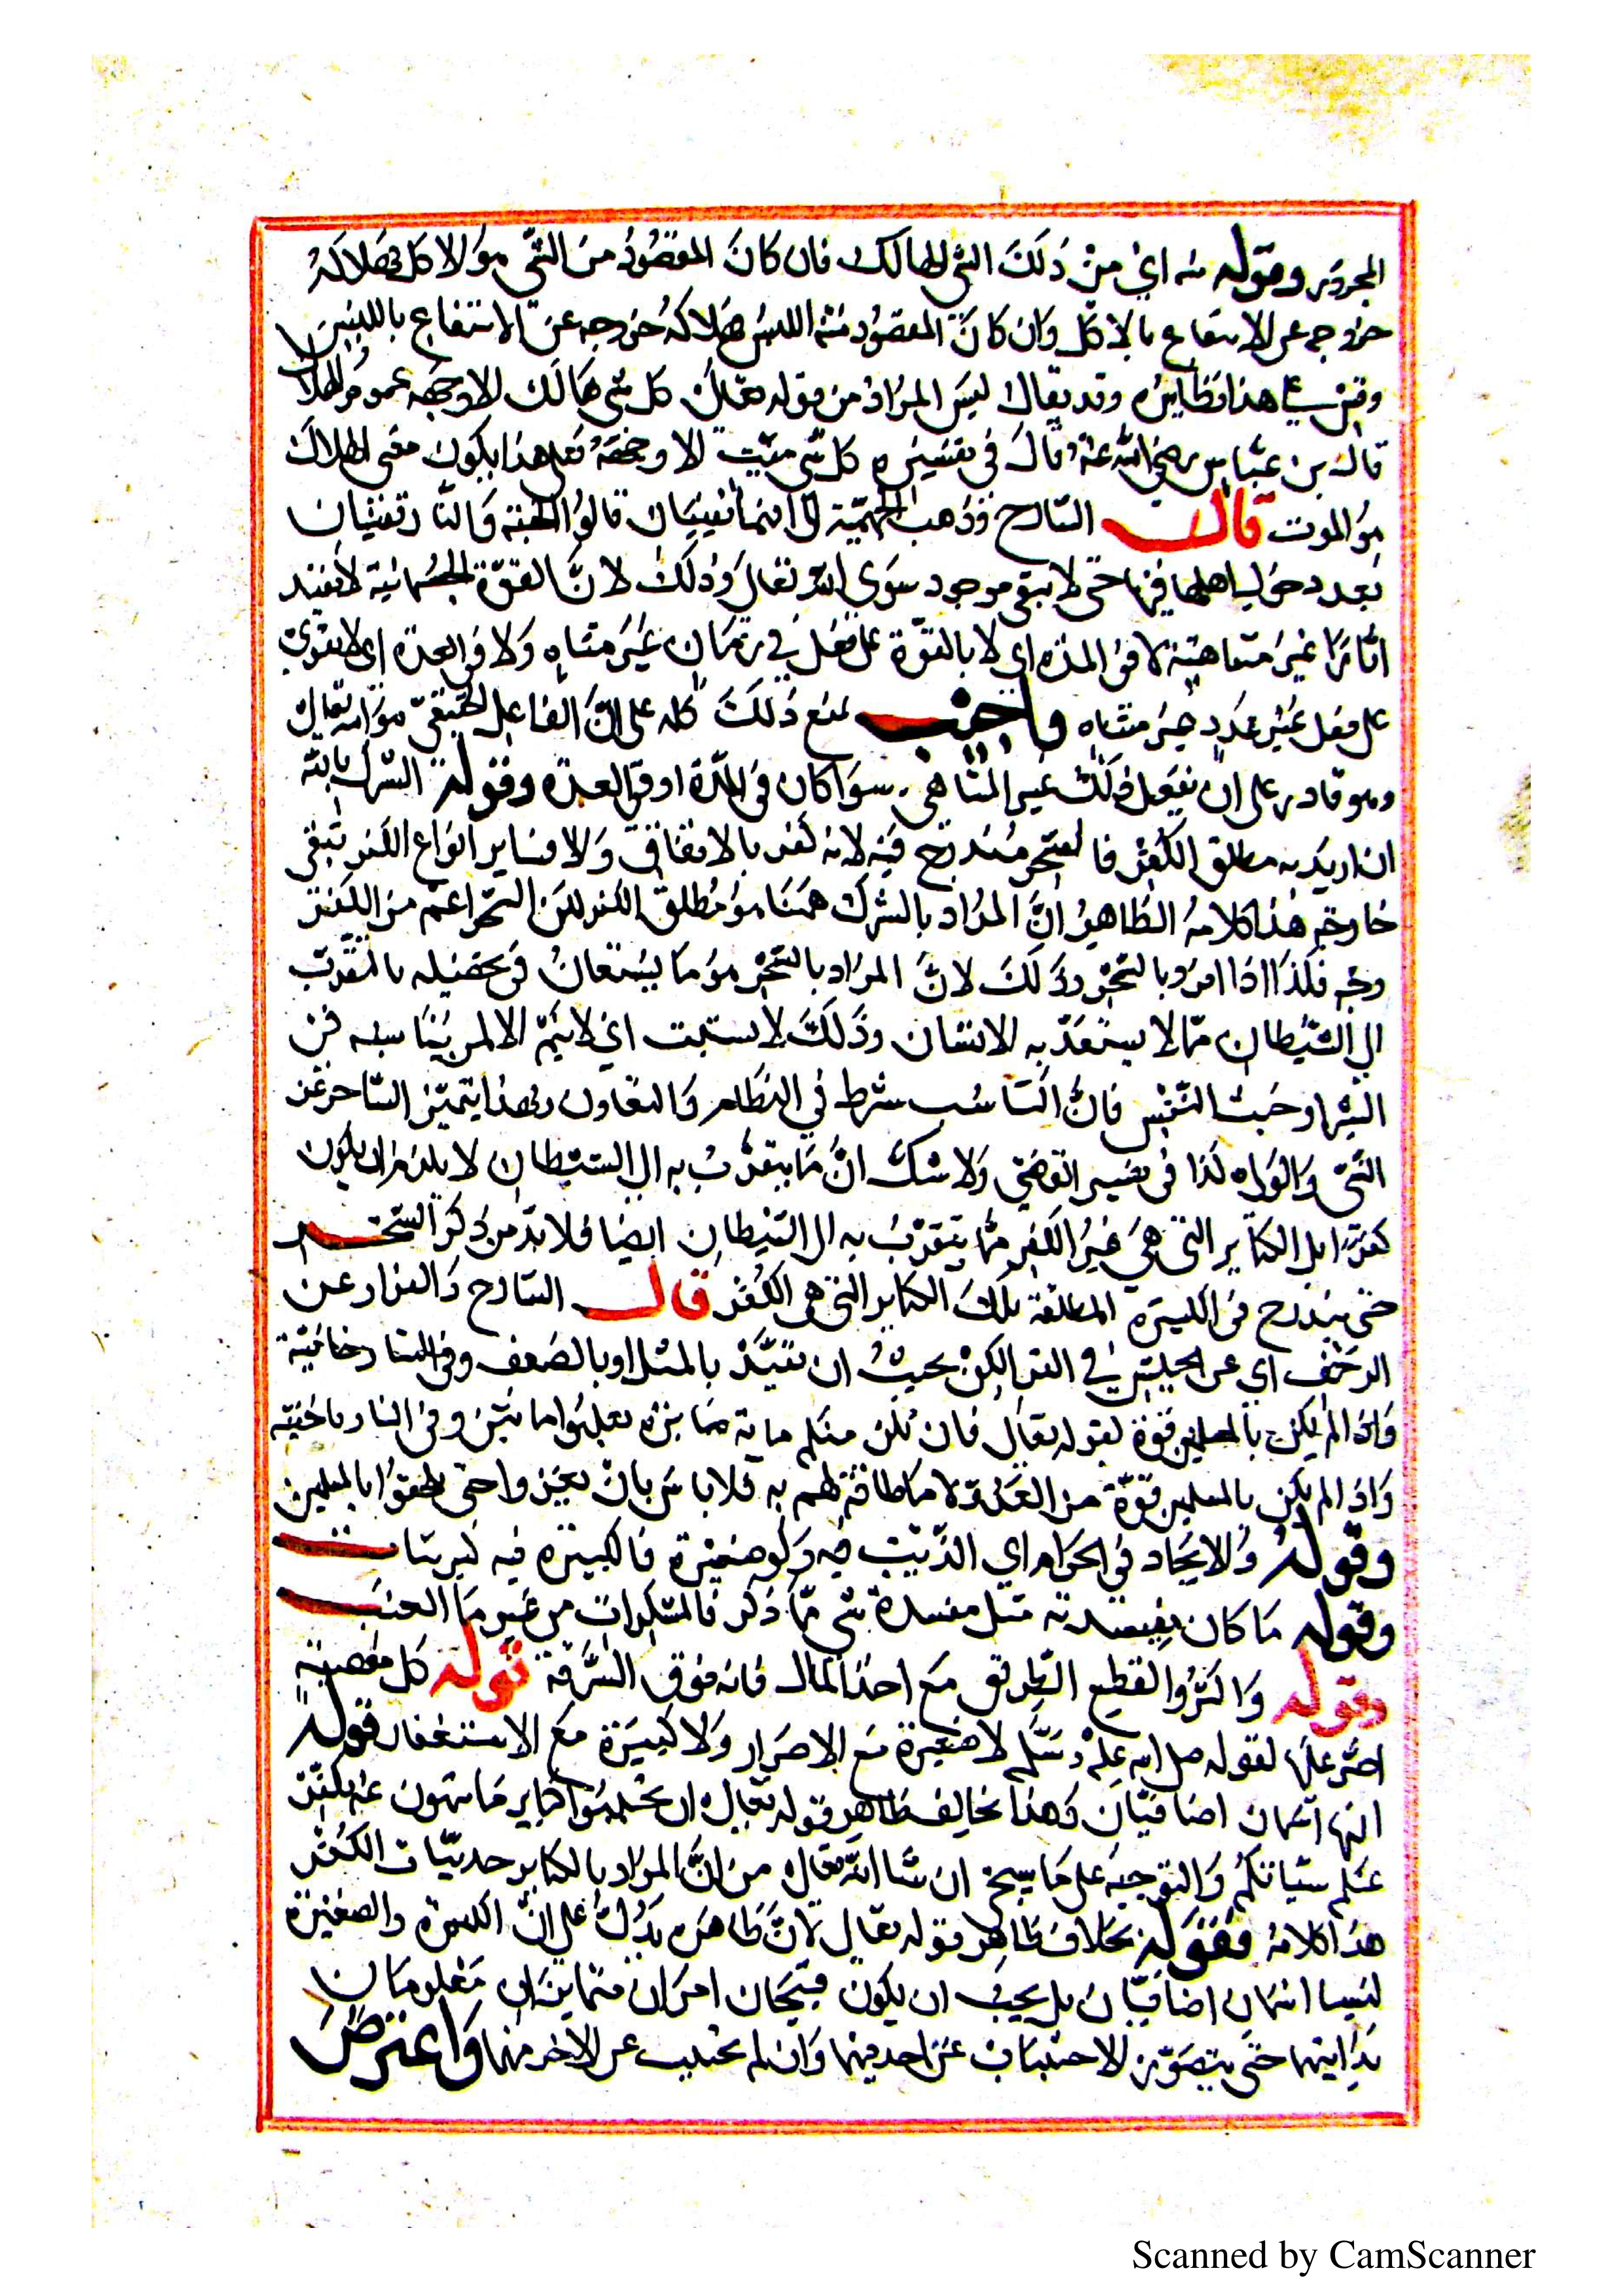 المجرور وقوله منه اي من ذلك الشي الهالك فان كان المقصود من الشي هو الاكل فهلاكه
خروجه عن الانتفاع بالاكل وان كان المقصود منه اللبس فهلاكه خروجه عن الانتفاع باللبس
وقس على هذا نظايره وقد يقال ليس المراد من قوله تعالى كل شي هالك الا وجهه عموم الهلاك
قال بن عباس رضي الله عنه قال في تفسيره كل شي ميت الا وجهه فعلى هذا يكون معنى الهلاك
هو الموت قال الشارح وذهب الجهمية الى انهما يفنيان قالوا الجنة والنار تفنيان
بعد دخول اهلهما فيها حتى لا يبقى موجود سوى الله تعالى وذلك لان القوة الجسمانية لا تفيد
اثارا غير متناهية لا في المدة اي لا بالقوة على فعل في زمان غير متناه ولا في العدة اي لا تقوى
على فعل غير عدد غير متناه واجيب بمنع ذلك كله على ان الفاعل الحقيقي هو الله تعالى
وهو قادر على ان يفعل ذلك غير المتناهي سوا كان في المدة او في العدة وقوله الشرك بالله
ان اريد به مطلق الكفر فالسحر مندرج فيه لانه كفر بالاتفاق والا فساير انواع الكفر تبقى
خارجة هذا كلامه الظاهر ان المراد بالشرك ههنا هو مطلق الكفر لكن السحر اعم من الكفر
وجه فكذا اذا امروا بالسحر وذلك لان المراد بالسحر هو ما يستعان في تحصيله بالتقرب
الى الشيطان مما لا يستعد به الانسان وذلك لا يستتب اي لا يتم الا لمن يناسبه في
الشرارة وخبث النفس فان التناسب شرط في النظام والتعاون وبهذا يتميز الساحر عن
النبي والولي كذا في تفسير القاضي ولا شك ان ما يتقرب به الى الشيطان لا يلزم ان يكون
كفرا بل الكباير التي هي غير الكفر مما يتقرب به الى الشيطان ايضا فلا بد من ذكر السحر
حتى يندرج في الكبيرة المطلقة تلك الكباير التي هي الكفر قال الشارح والفرار عن
الزحف اي عن الجيش في الغزو لكن بحيث ان تقيد بالمثل او بالضعف وفي التتارخانية
واذا لم يكن بالمسلمين قوة لقوله تعالى فان تكن منكم ماية صابرة يغلبوا مائتين وفي التتارخانية
واذا لم يكن بالمسلمين قوة من العدو لا ما طاقة لهم به فلا باس بان يحيزوا حتى يلحقوا بالمسلمين
وقوله والالحاد في الحرام اي الذنب فيه ولو صغيرة فالكبيرة فيه كبرتان
وقوله ما كان مفسدته مثل مفسدة شي مما ذكر فالمسكرات من غير ما العنب
وقوله واكثر والقطيع الطريق مع اخذ المال فانه فوق السرقة قوله كل معصية
اصر عليها لقوله صلى الله عليه وسلم لا صغيرة مع الاصرار ولا كبيرة مع الاستغفار قوله
انهما اسمان اضافيان وهذا يخالف ظاهر قوله تعالى ان تجتنبوا كباير ما تنهون عنه نكفر
عنكم سيئاتكم والتوجيه على ما سيجئ ان شا الله تعالى من ان المراد بالكباير جزئيات الكفر
هذا كلامه فقوله بخلاف ظاهر قوله تعالى لان ظاهره يدل على ان الكبيرة والصغيرة
ليسا اسمان اضافيان بل يجب ان يكون قبيحان امران متمايزان معلومان
بذاتيهما حتى يتصور الاجتناب عن احديهما وان لم يجتنب عن الاخر منهما واعترض
Scanned by CamScanner